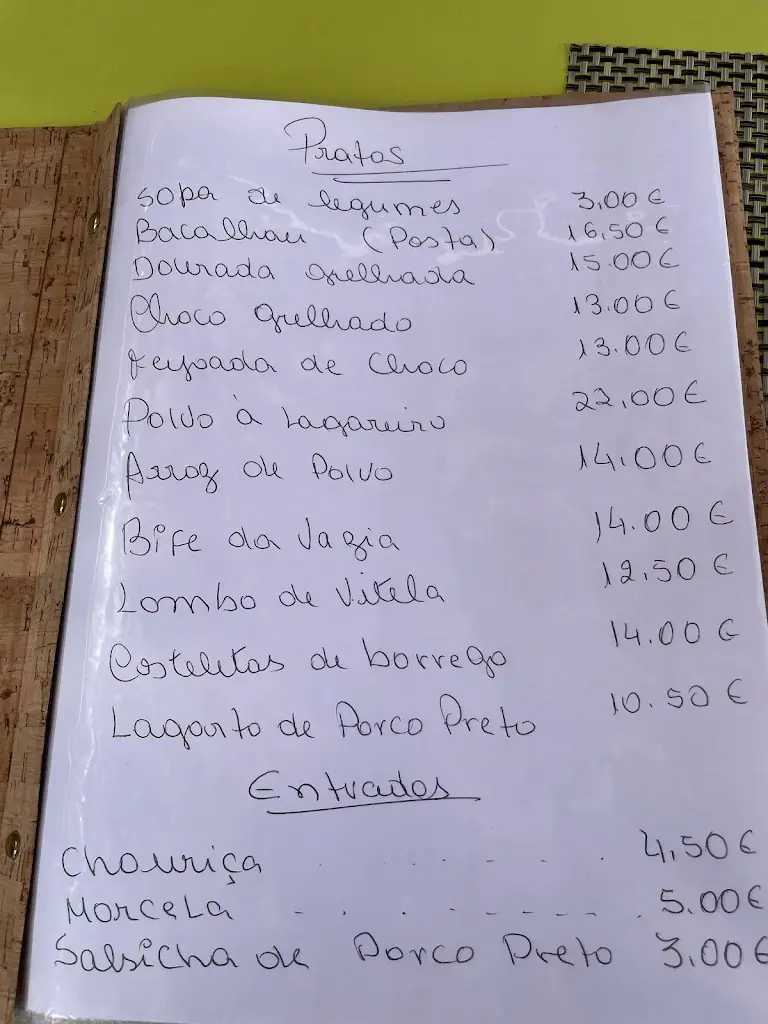 Pratos
Sopa de legumes 3,00 €
Bacalhau (Posta) 16,50 €
Dourada grelhada 15.00 €
Choco grelhado 13.00 €
feijoada de Choco 13.00 €
Polvo à Lagareiro 22,00 €
Arroz de Polvo 14.00 €
Bife da Vazia 14.00 €
Lombo de Vitela 12,50 €
Costeletas de borrego 14.00 €
Lagarto de Porco Preto 10.50 €
Entradas
Chouriça . . . - - . . 4,50 €
Morcela - . . . - - - - - . 5.00 €
Salsicha de Porco Preto 3,00 €